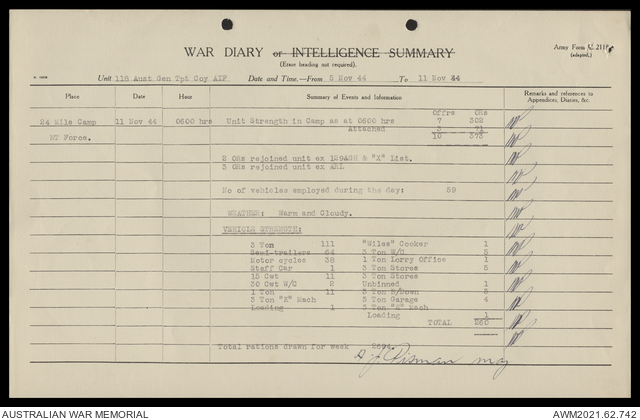 WAR DIARY or INTELLIGENCE SUMMARY
(Erase heading not required).
Army Form C. 2118
(adapted).
Unit 118 Aust Gen Tpt Coy AIF Date and Time.—From 5 Nov 44 To 11 Nov 44
Place Date Hour Summary of Events and Information Remarks and references to Appendices, Diaries, &c.
Offrs ORs
24 Mile Camp 11 Nov 44 0600 hrs Unit Strength in Camp as at 0600 hrs 7 302
Attached 3 71
NT Force. 10 373
2 ORs rejoined unit ex 129AGH & "X" List.
3 ORs rejoined unit ex ARL
No of vehicles employed during the day: 59
WEATHER: Warm and Cloudy.
VEHICLE STRENGTH:
3 Ton 111 "Wiles" Cooker 1
Semi-trailers 64 3 Ton W/C 5
Motor cycles 38 1 Ton Lorry Office 1
Staff Car 1 3 Ton Stores 5
15 Cwt 11 3 Ton Stores
30 Cwt W/C 2 Unbinned 1
1 Ton 11 3 Ton B/Down 5
3 Ton "X" Mach 3 Ton Garage 4
Loading 1 3 Ton Mach
Loading 1
TOTAL 260
Total rations drawn for week 2694.
Maj
AUSTRALIAN WAR MEMORIAL AWM2021.62.742